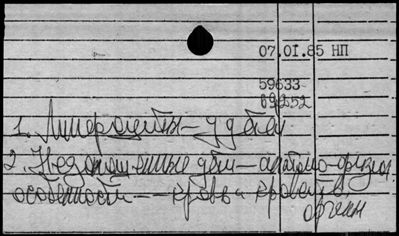 07.01.85 НП
59633-
69252
1. Лимфоциты – у детей
2. Недоношенные дети – анатомо-физиол.
особенности – кровь и кроветв.
орган